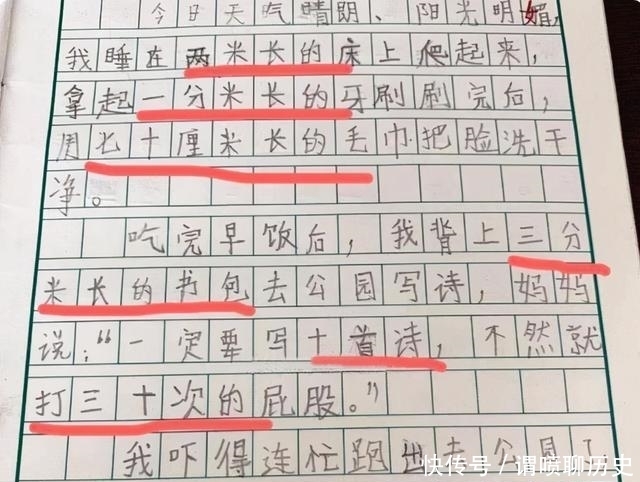 今日天气晴朗、阳光明媚,
我睡在两米长的床上爬起来,
拿起一分米长的牙刷刷完后,
用七十厘米长的毛巾把脸洗干
净。
吃完早饭后,我背上三分
米长的书包去公园写诗,妈妈
说:“一定要写十首诗,不然就
打三十次的屁股。”
我吓得连忙跑出去公园了
快传号/谓喷聊历史